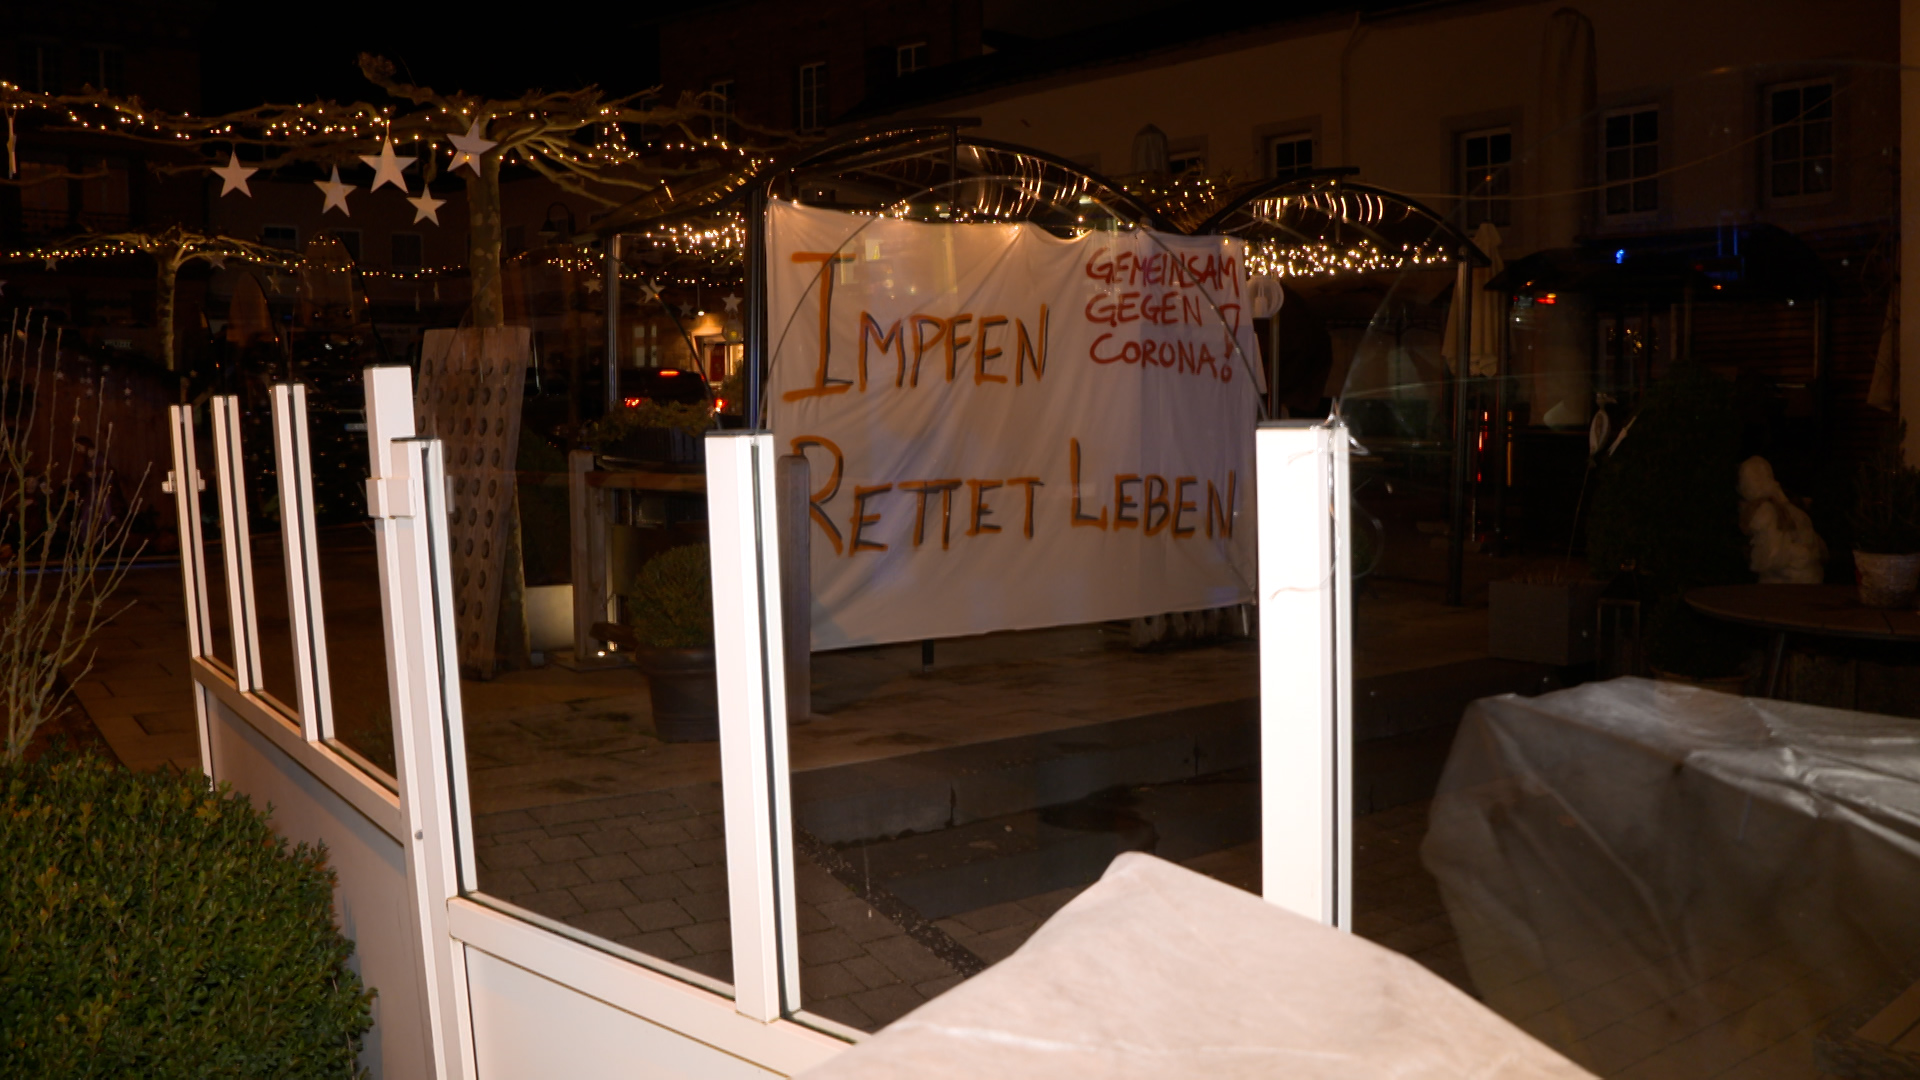 IMPFEN
RETTET LEBEN
GEMEINSAM
GEGEN
CORONA!